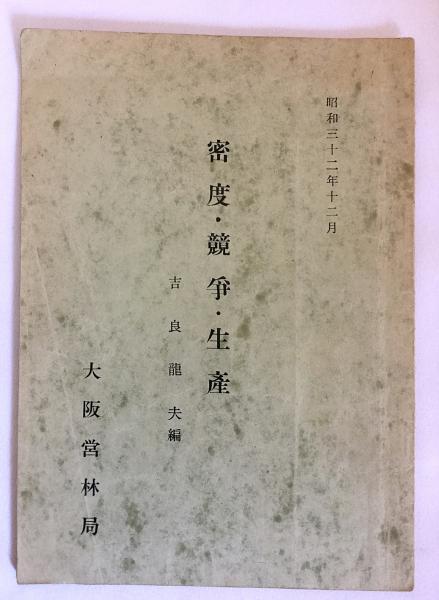 昭和三十二年十二月
密度・競爭・生產
吉良龍夫編
大阪営林局